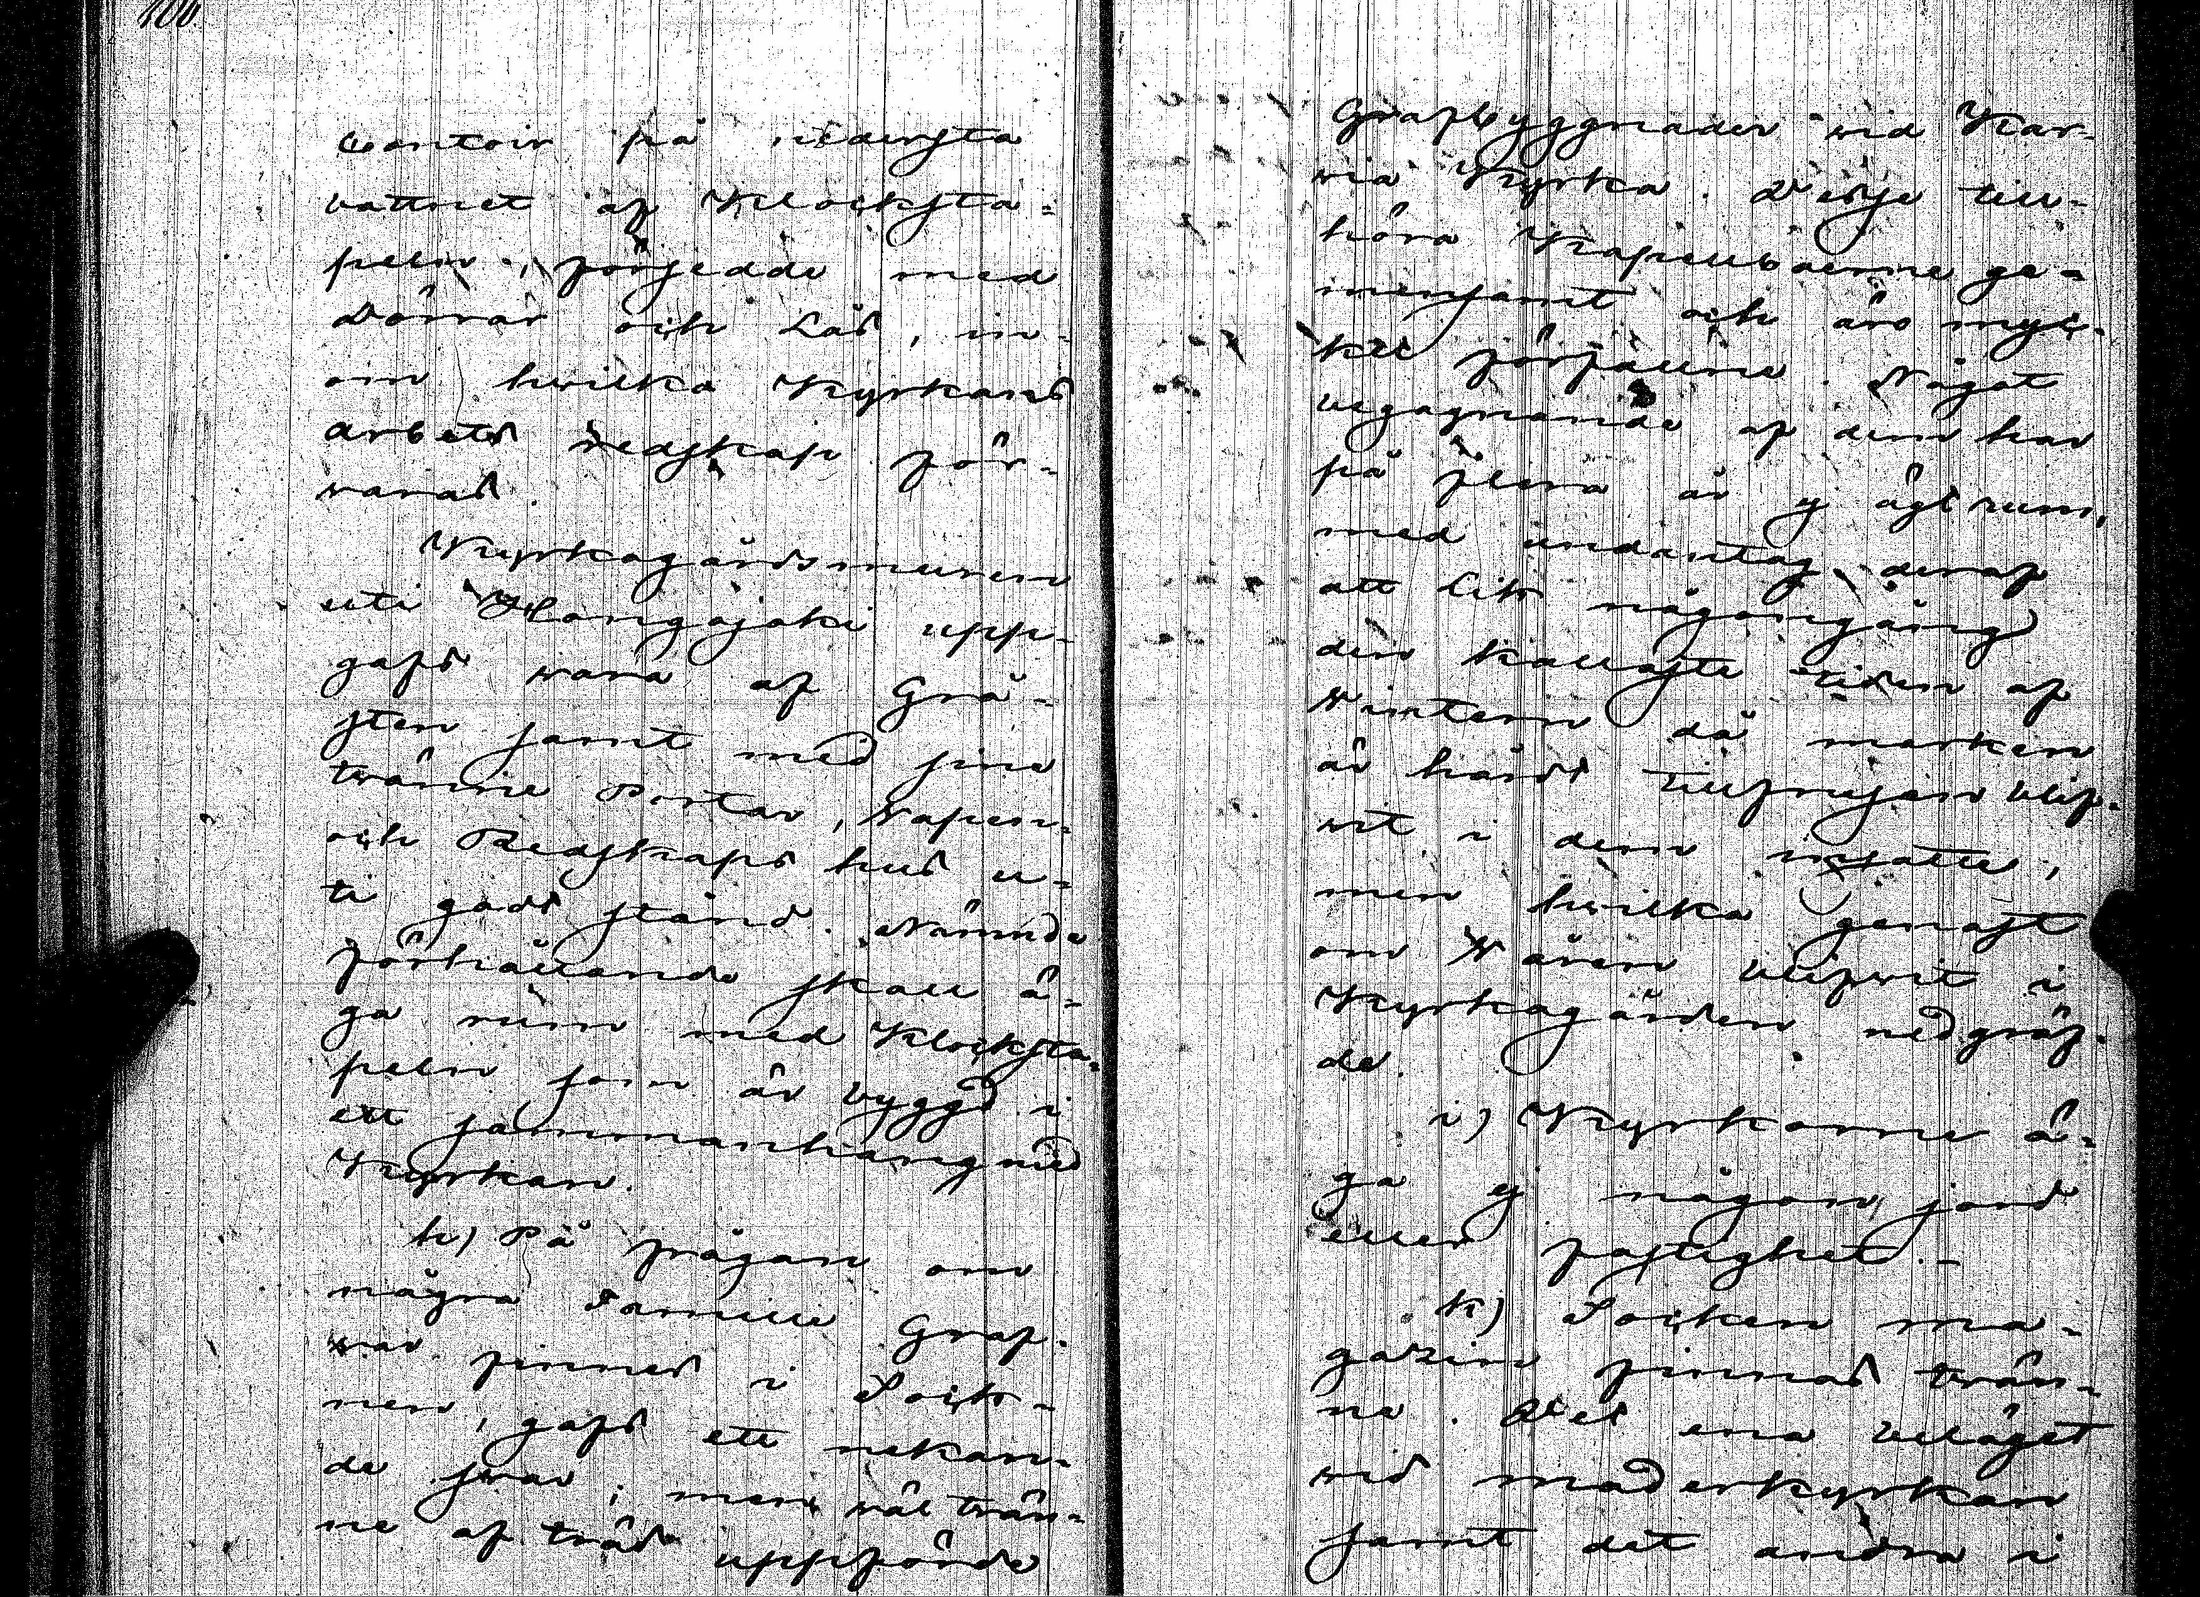 106
contoir på nedersta
båttnet af Klocksta-
peln, försedde med
Dörrar och Lås, in-
om hvilka Kyrkans
arbets redskap för-
varas.
Kyrkogårdsmuren
uti Hongojoki upp-
gafs wara af Grå-
sten samt med sine
tvänne Portar, Vapen-
och Redskaps hus u-
ti godt stånd. Nämnde
förhållande skall ä-
ga rum med Klocksta-
peln som är byggd i
ett sammanhang med
Kyrkan.
h) På frågan om
några Familie Graf-
var finnes i Sock-
nen, gafs ett nekan-
de svar; men väl tvän-
ne af träd uppförde
Grafbyggnader vid Kar-
via Kyrka. Desse till-
höra Kapellboerne ge-
mensamt och äro myc-
ket förfallne. Något
begagnande af dem har
på flera år ej ägt rum,
med undantag deraf
att lik någongång
den kallaste tiden af
vintern då marken
är hårdt tillfrusen blif-
vit i dem insatte,
men hvilka genast
om Våren blifvit i
Kyrkogården nedgräf-
de.
i) Kyrkorne ä-
ga ej någon jord
eller fastighet.-
k) Socken ma-
gazin finnas tvän-
ne. Det ena beläget
vid moderkyrkan
samt det andra i